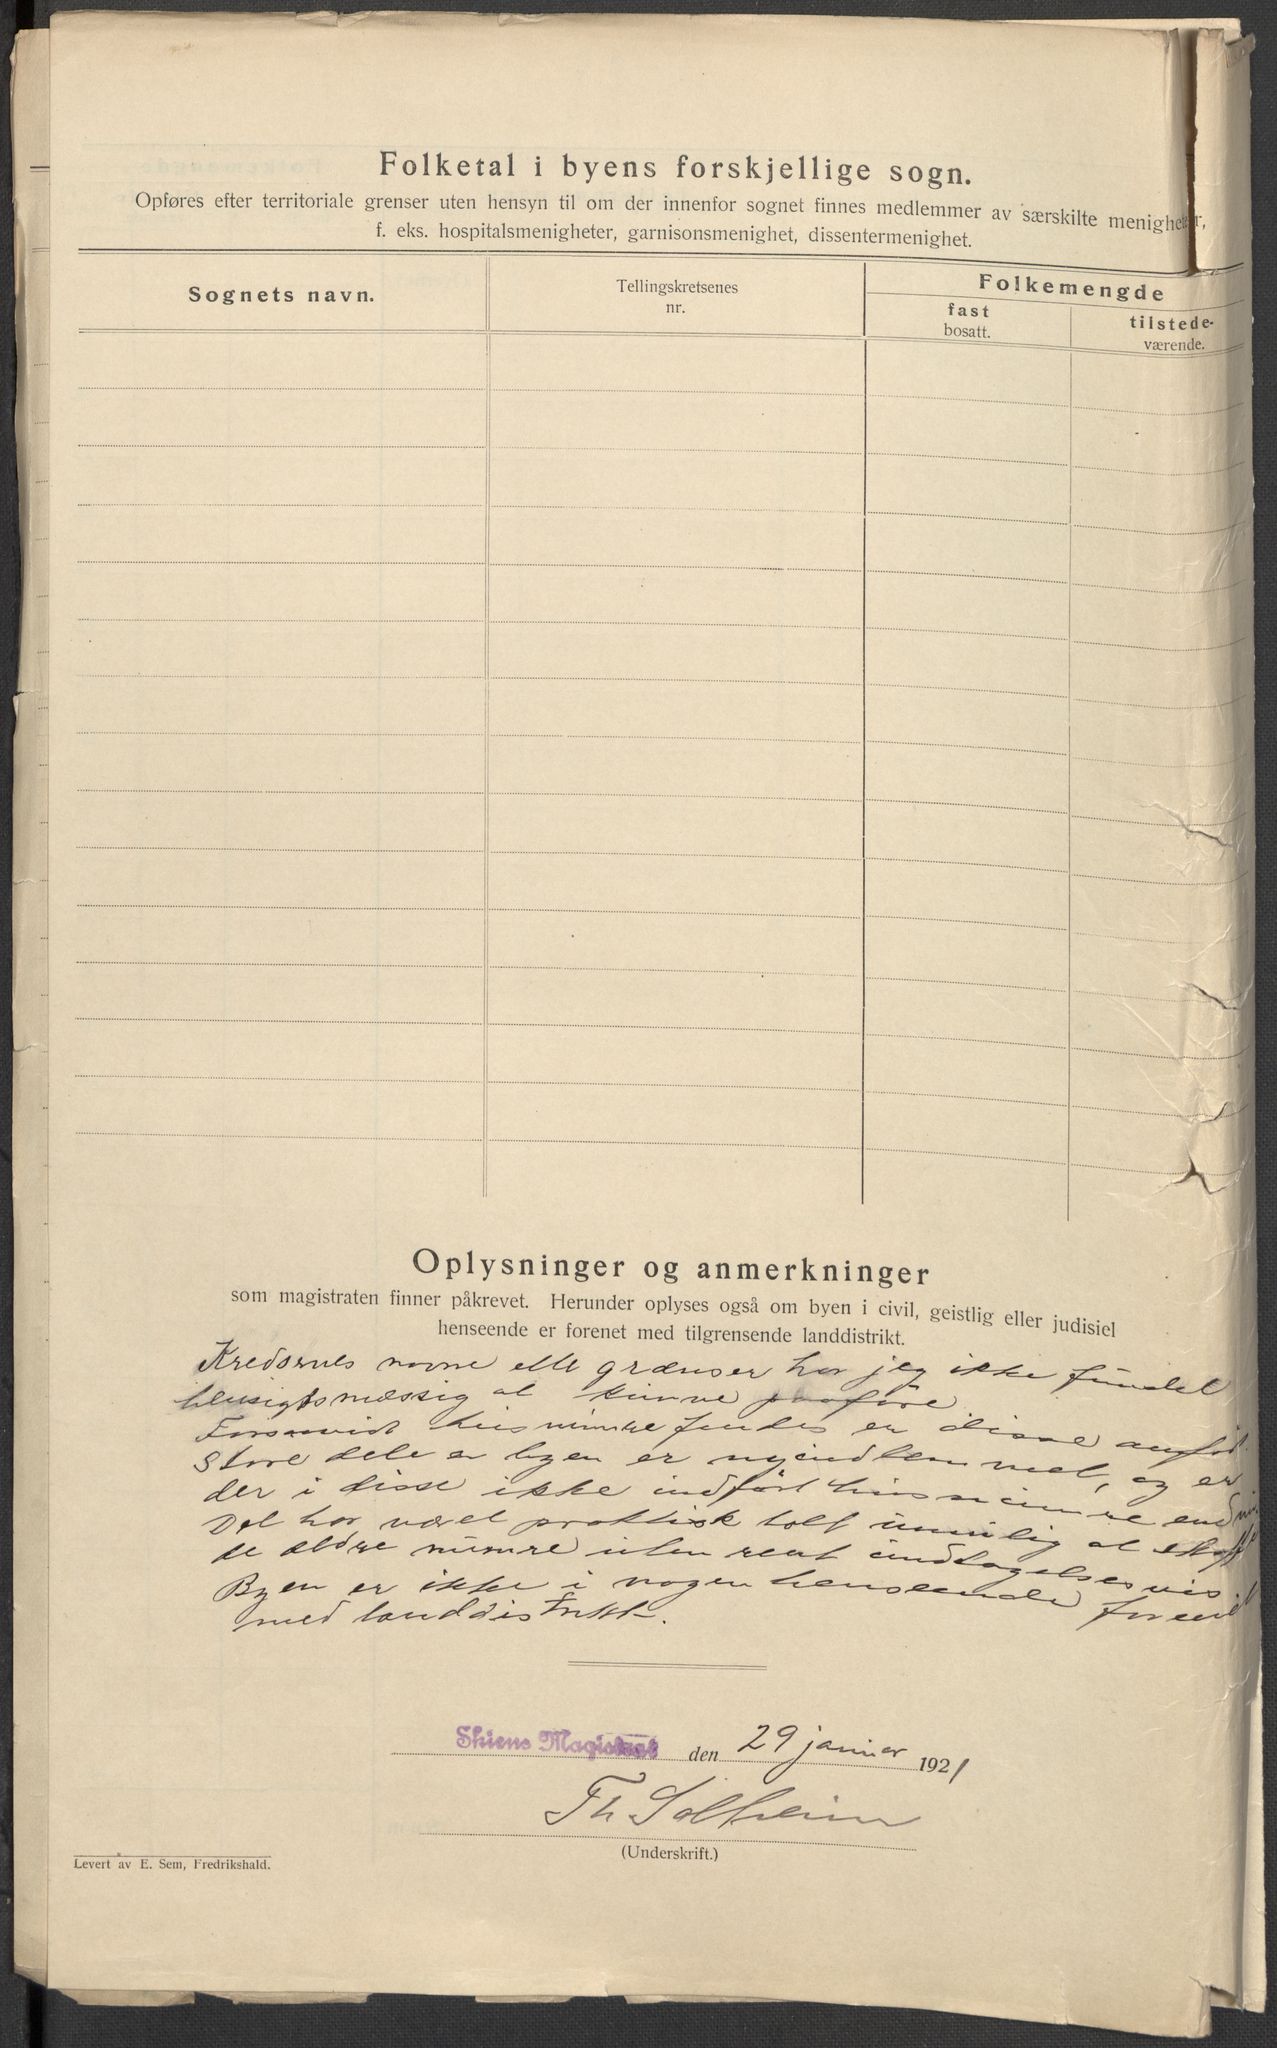 Folketal i byens forskjellige sogn.
Opføres efter territoriale grenser uten hensyn til om der innenfor sognet finnes medlemmer av særskilte menigheter,
f. eks. hospitalsmenigheter, garnisonsmenighet, dissentermenighet.
Sognets navn.
Tellingskretsenes
nr.
Folkemengde
fast
bosatt.
tilstede-
værende.
Oplysninger og anmerkninger
som magistraten finner påkrevet. Herunder oplyses også om byen i civil, geistlig eller judisiel
henseende er forenet med tilgrensende landdistrikt.
Kredsernes navne eller grænser har jeg ikke fundet
hensigtsmæssig at kunne paaføre
Forsaavidt husnumre findes er disse anført.
Store dele av byen er nyindlemmet, og er
der i disse ikke indført husnumre endnu.
Det har været praktisk talt umulig at skaffe
de ældre numre uten rent undtagelsesvis.
Byen er ikke i nogen henseende forenet
med landdistrikt.
Skiens Magistrat den 29 januar 1921
Th Solheim
(Underskrift.)
Levert av E. Sem, Fredrikshald.